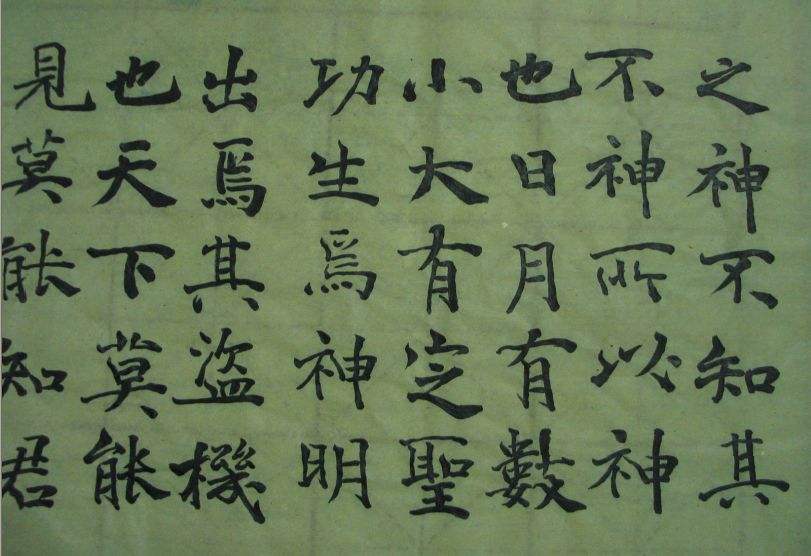 之神不知其
不神所以神
也日月有數
小大有定聖
功生焉神明
出焉其盜機
也天下莫能
見莫能知君